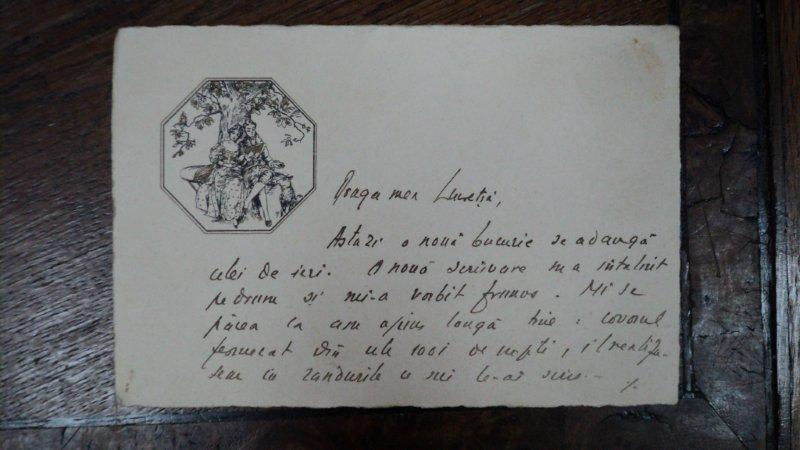 Draga mea Lucreția,
Astăzi o nouă bucurie se adaugă
celei de ieri. O nouă scrisoare m-a întâlnit
pe drum și mi-a vorbit frumos. Mi se
părea că am ajuns lângă tine: covorul
fermecat din cele 1001 de nopți, îl realiza-
sem cu rândurile ce mi le-ai scris.-